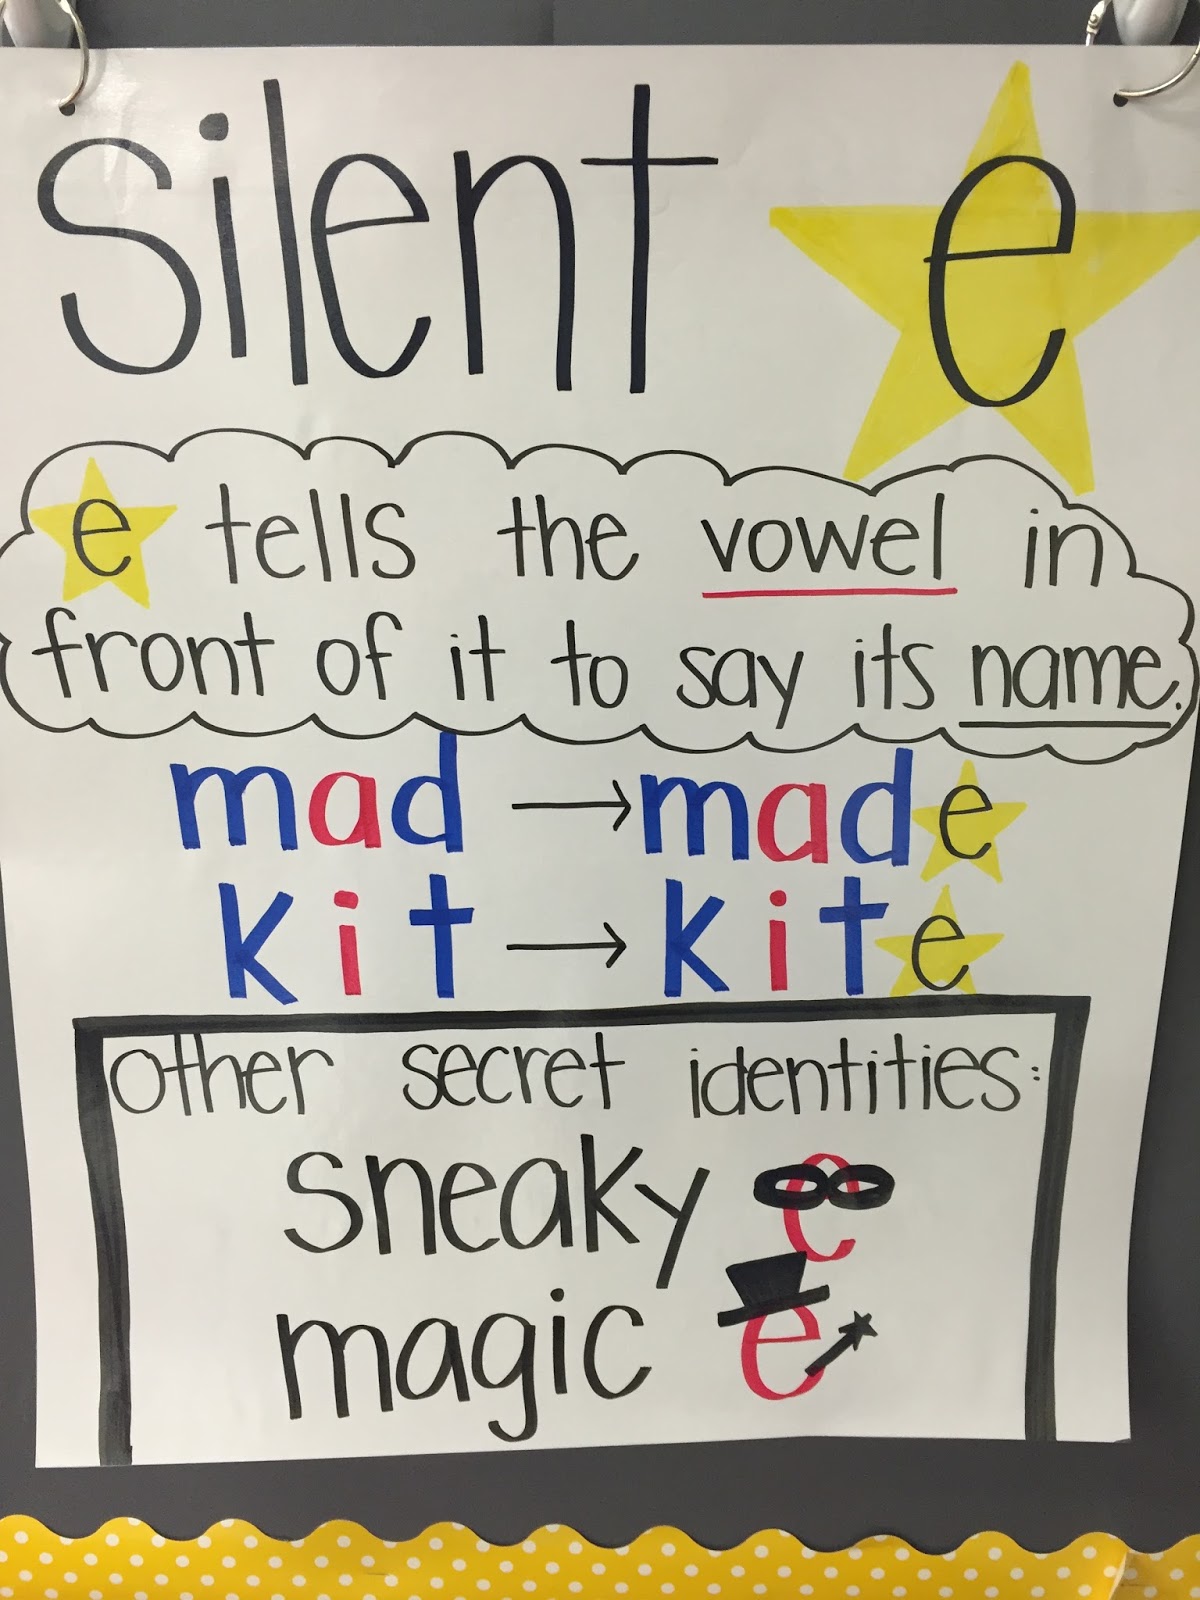 silent e
e tells the vowel in
front of it to say its name.
mad → made
kit → kite
other secret identities:
sneaky e
magic e